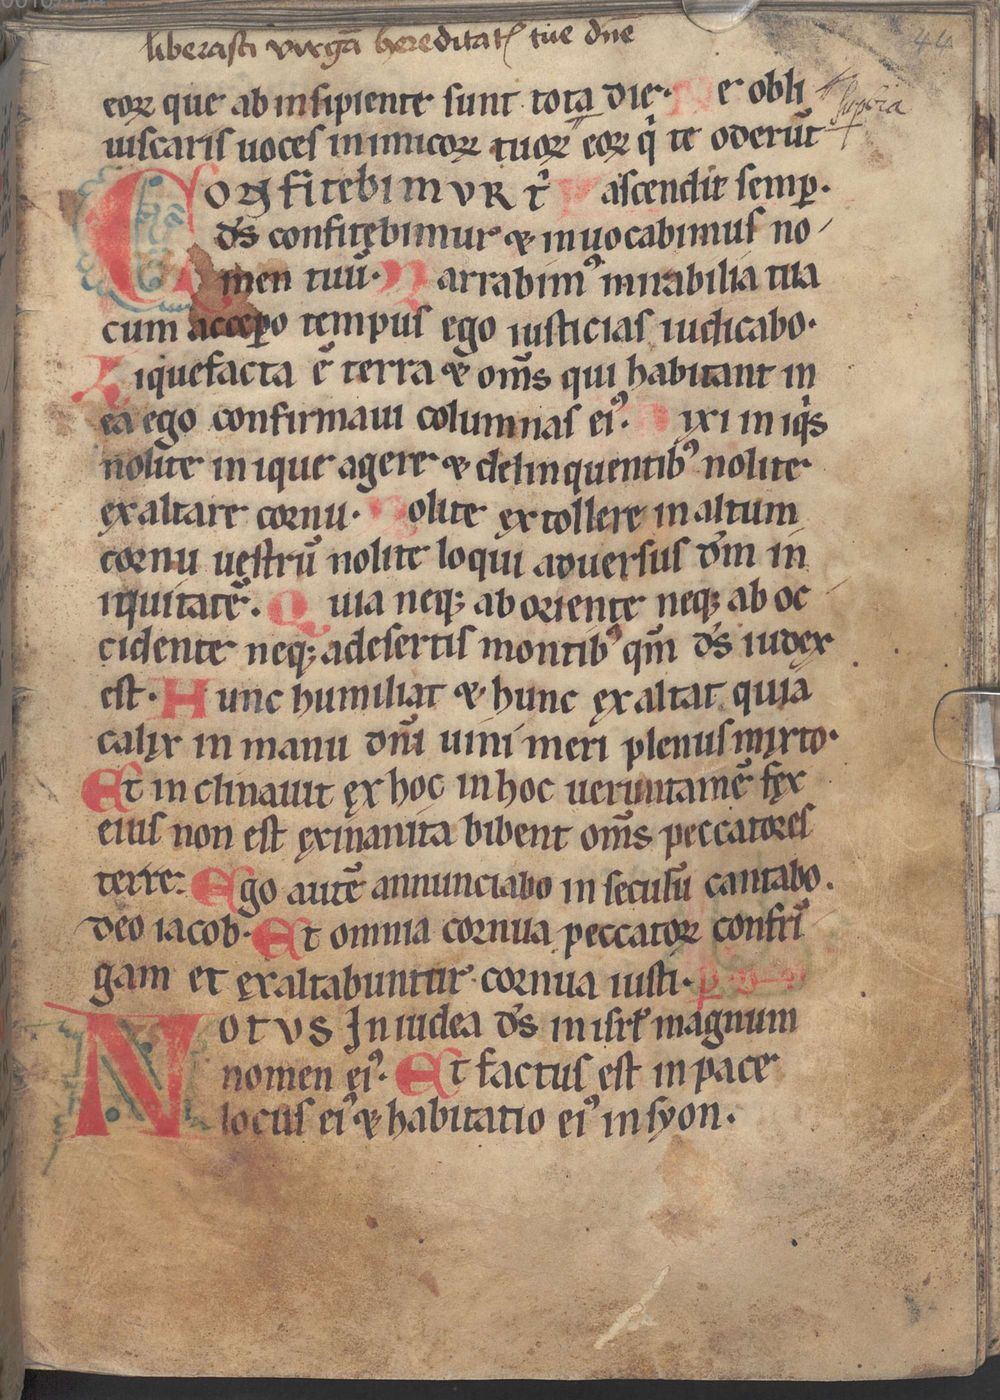 liberasti virgā hereditatꝭ tue dn̄e
44
eoꝝ que ab insipiente sunt tota die. Ne obli
uiscaris uoces inimicoꝝ tuoꝝ eoꝝ q̇ te oderūt
Confitebimvr t̾ ascendit semꝑ.
d̄s confitebimur ⁊ inuocabimus no
men tuū. Narrabimꝰ mirabilia tua
cum accepo tempus ego iusticias iudicabo.
Liquefacta ē terra ⁊ om̄s qui habitant in
ea ego confirmaui columnas eiꝰ. Dixi iniq̇s
nolite inique agere ⁊ delinquentibꝰ nolite
exaltare cornu. Nolite extollere in altum
cornu uestrū nolite loqui aduersus dm̄ in
iquitatē. Quia neqꝫ ab oriente neqꝫ ab oc
cidente neqꝫ a desertis montibꝰ qm̄ d̄s iudex
est. Hunc humiliat ⁊ hunc exaltat quia
calix in manu dn̄i uini meri plenus mixto.
Et inclinauit ex hoc in hoc ueruntamē fex
eius non est exinanita bibent om̄s peccatores
terre. Ego autē annunciabo in seculū cantabo.
deo iacob. Et omnia cornua peccatoꝝ confrī
gam et exaltabuntur cornua iusti.
Notvs In iudea d̄s in isrł magnum
nomen eiꝰ. Et factus est in pace
locus eiꝰ ⁊ habitatio eiꝰ in syon.